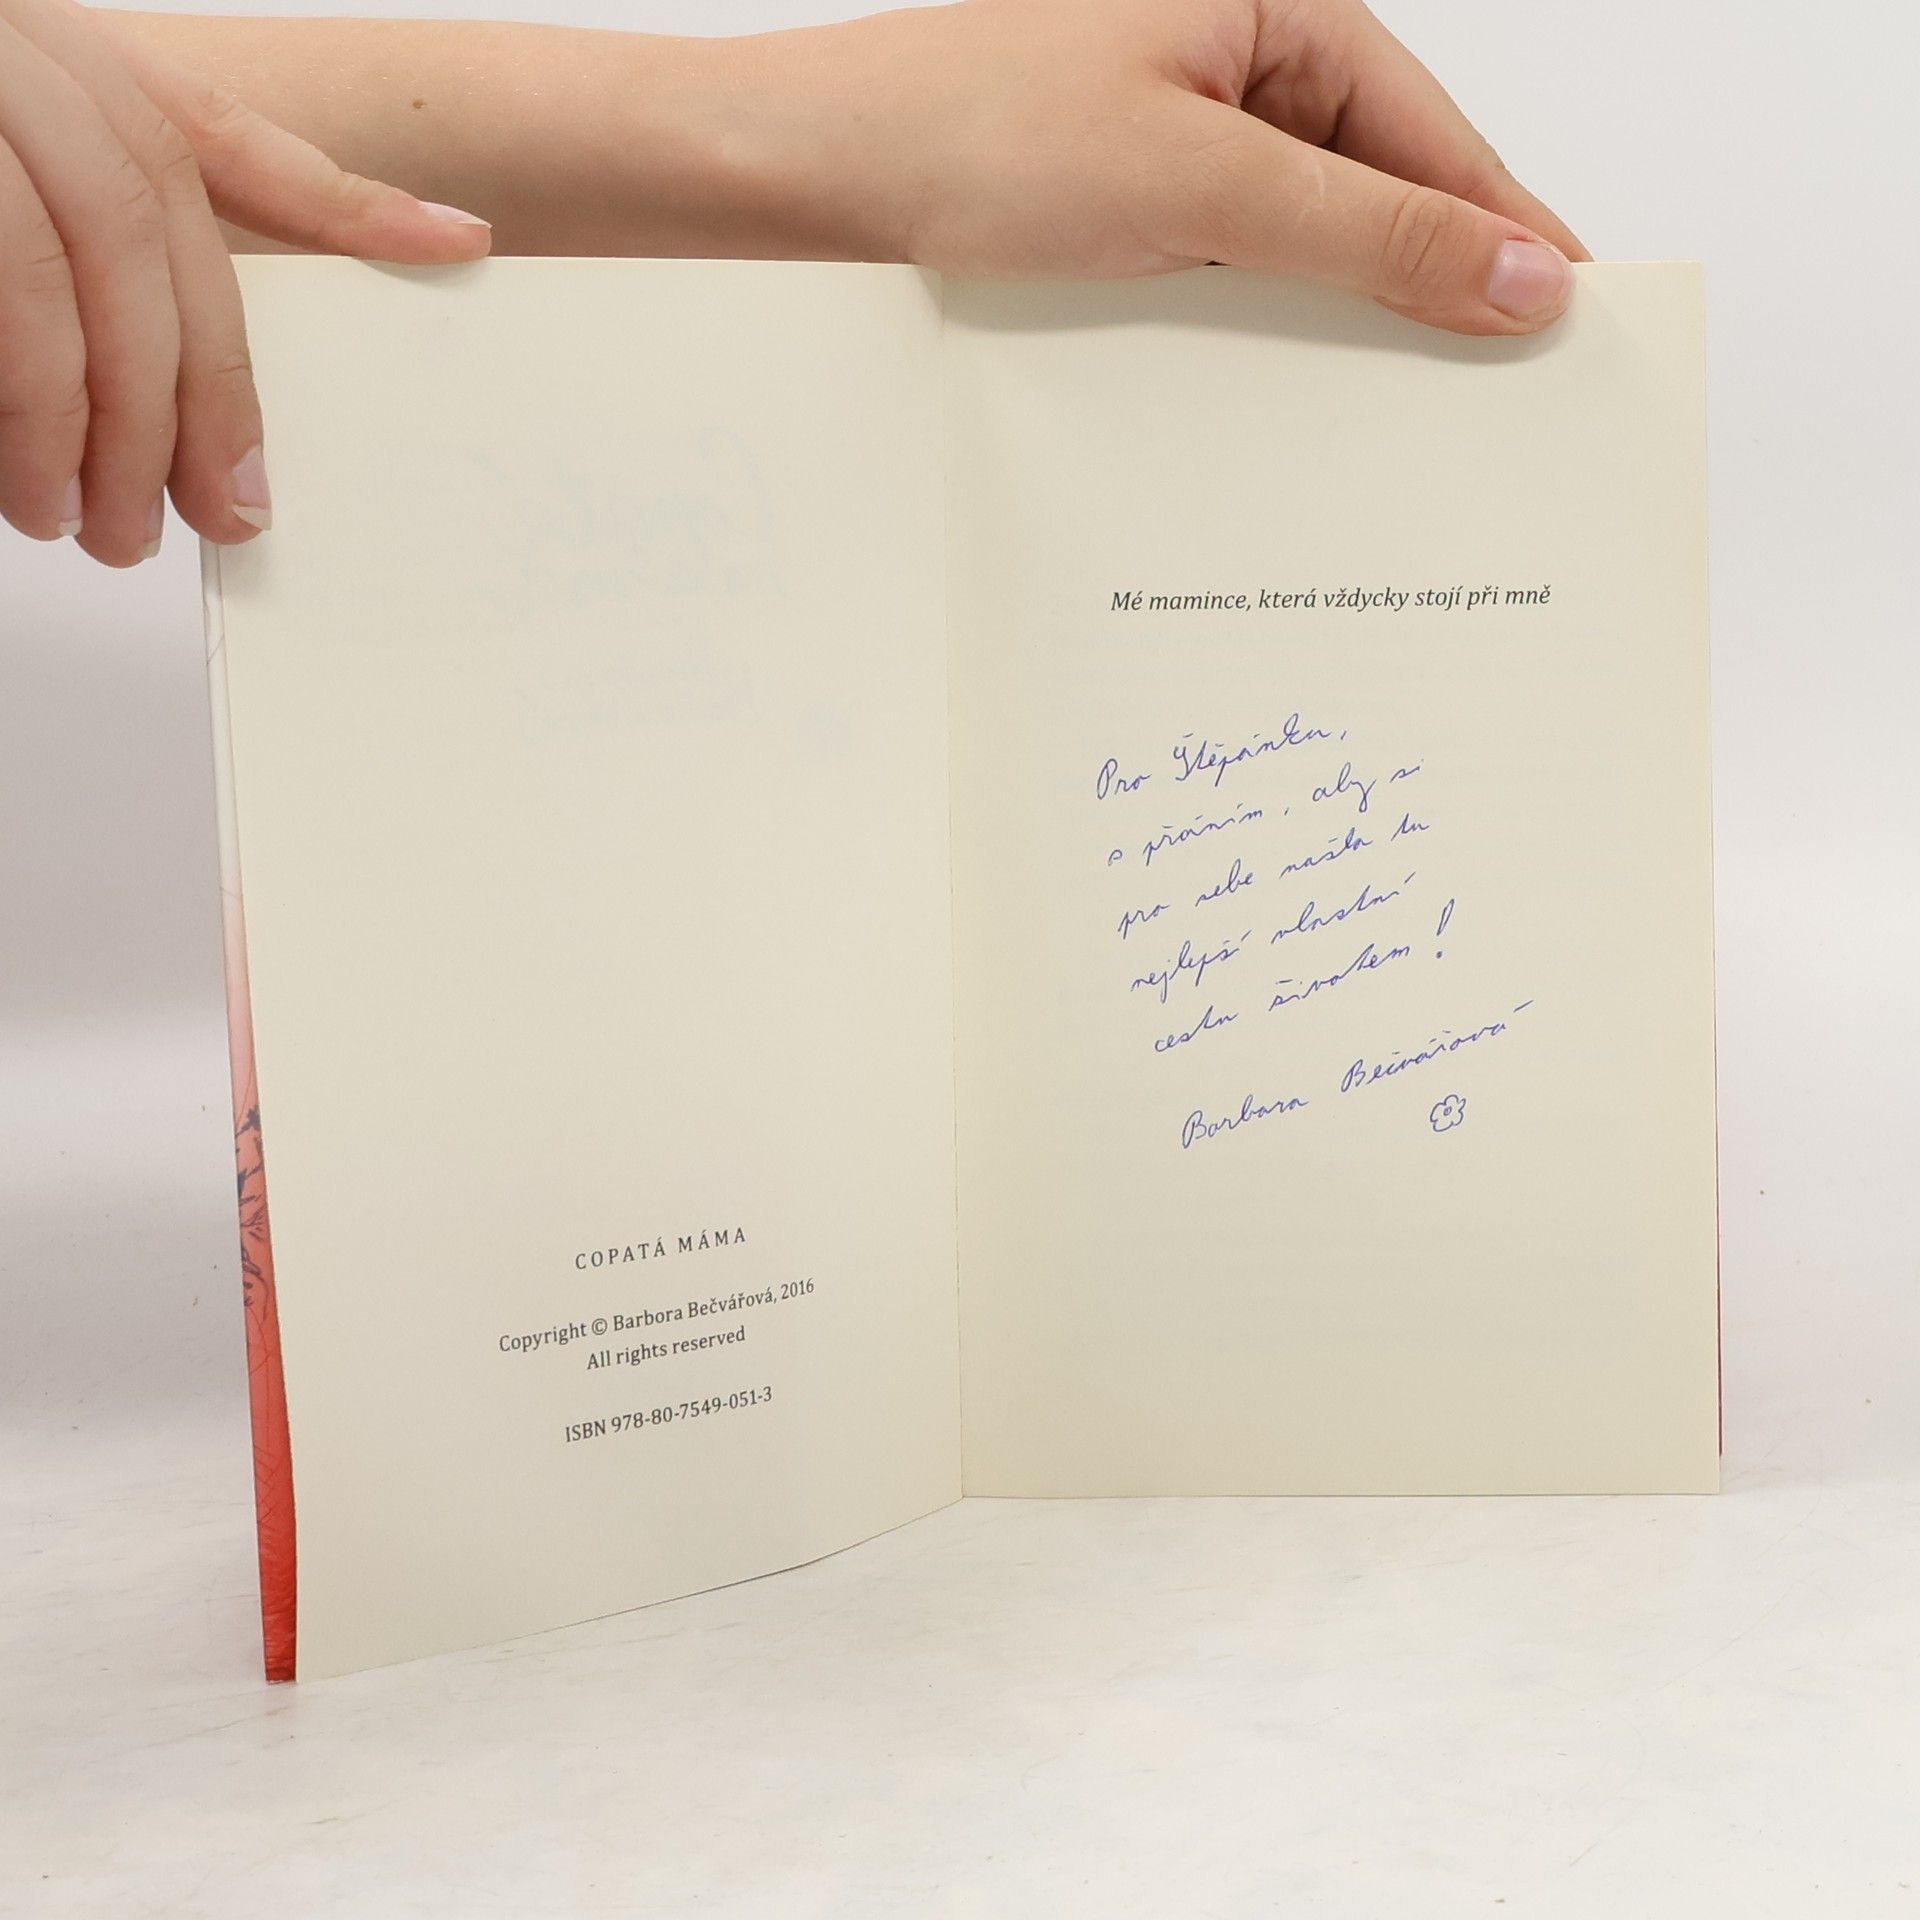 COPATÁ MÁMA
Copyright © Barbora Bečvářová, 2016
All rights reserved
ISBN 978-80-7549-051-3
Mé mamince, která vždycky stojí při mně
Pro Štěpánku,
s přáním, aby si
pro sebe našla tu
nejlepší vlastní
cestu životem!
Barbora Bečvářová